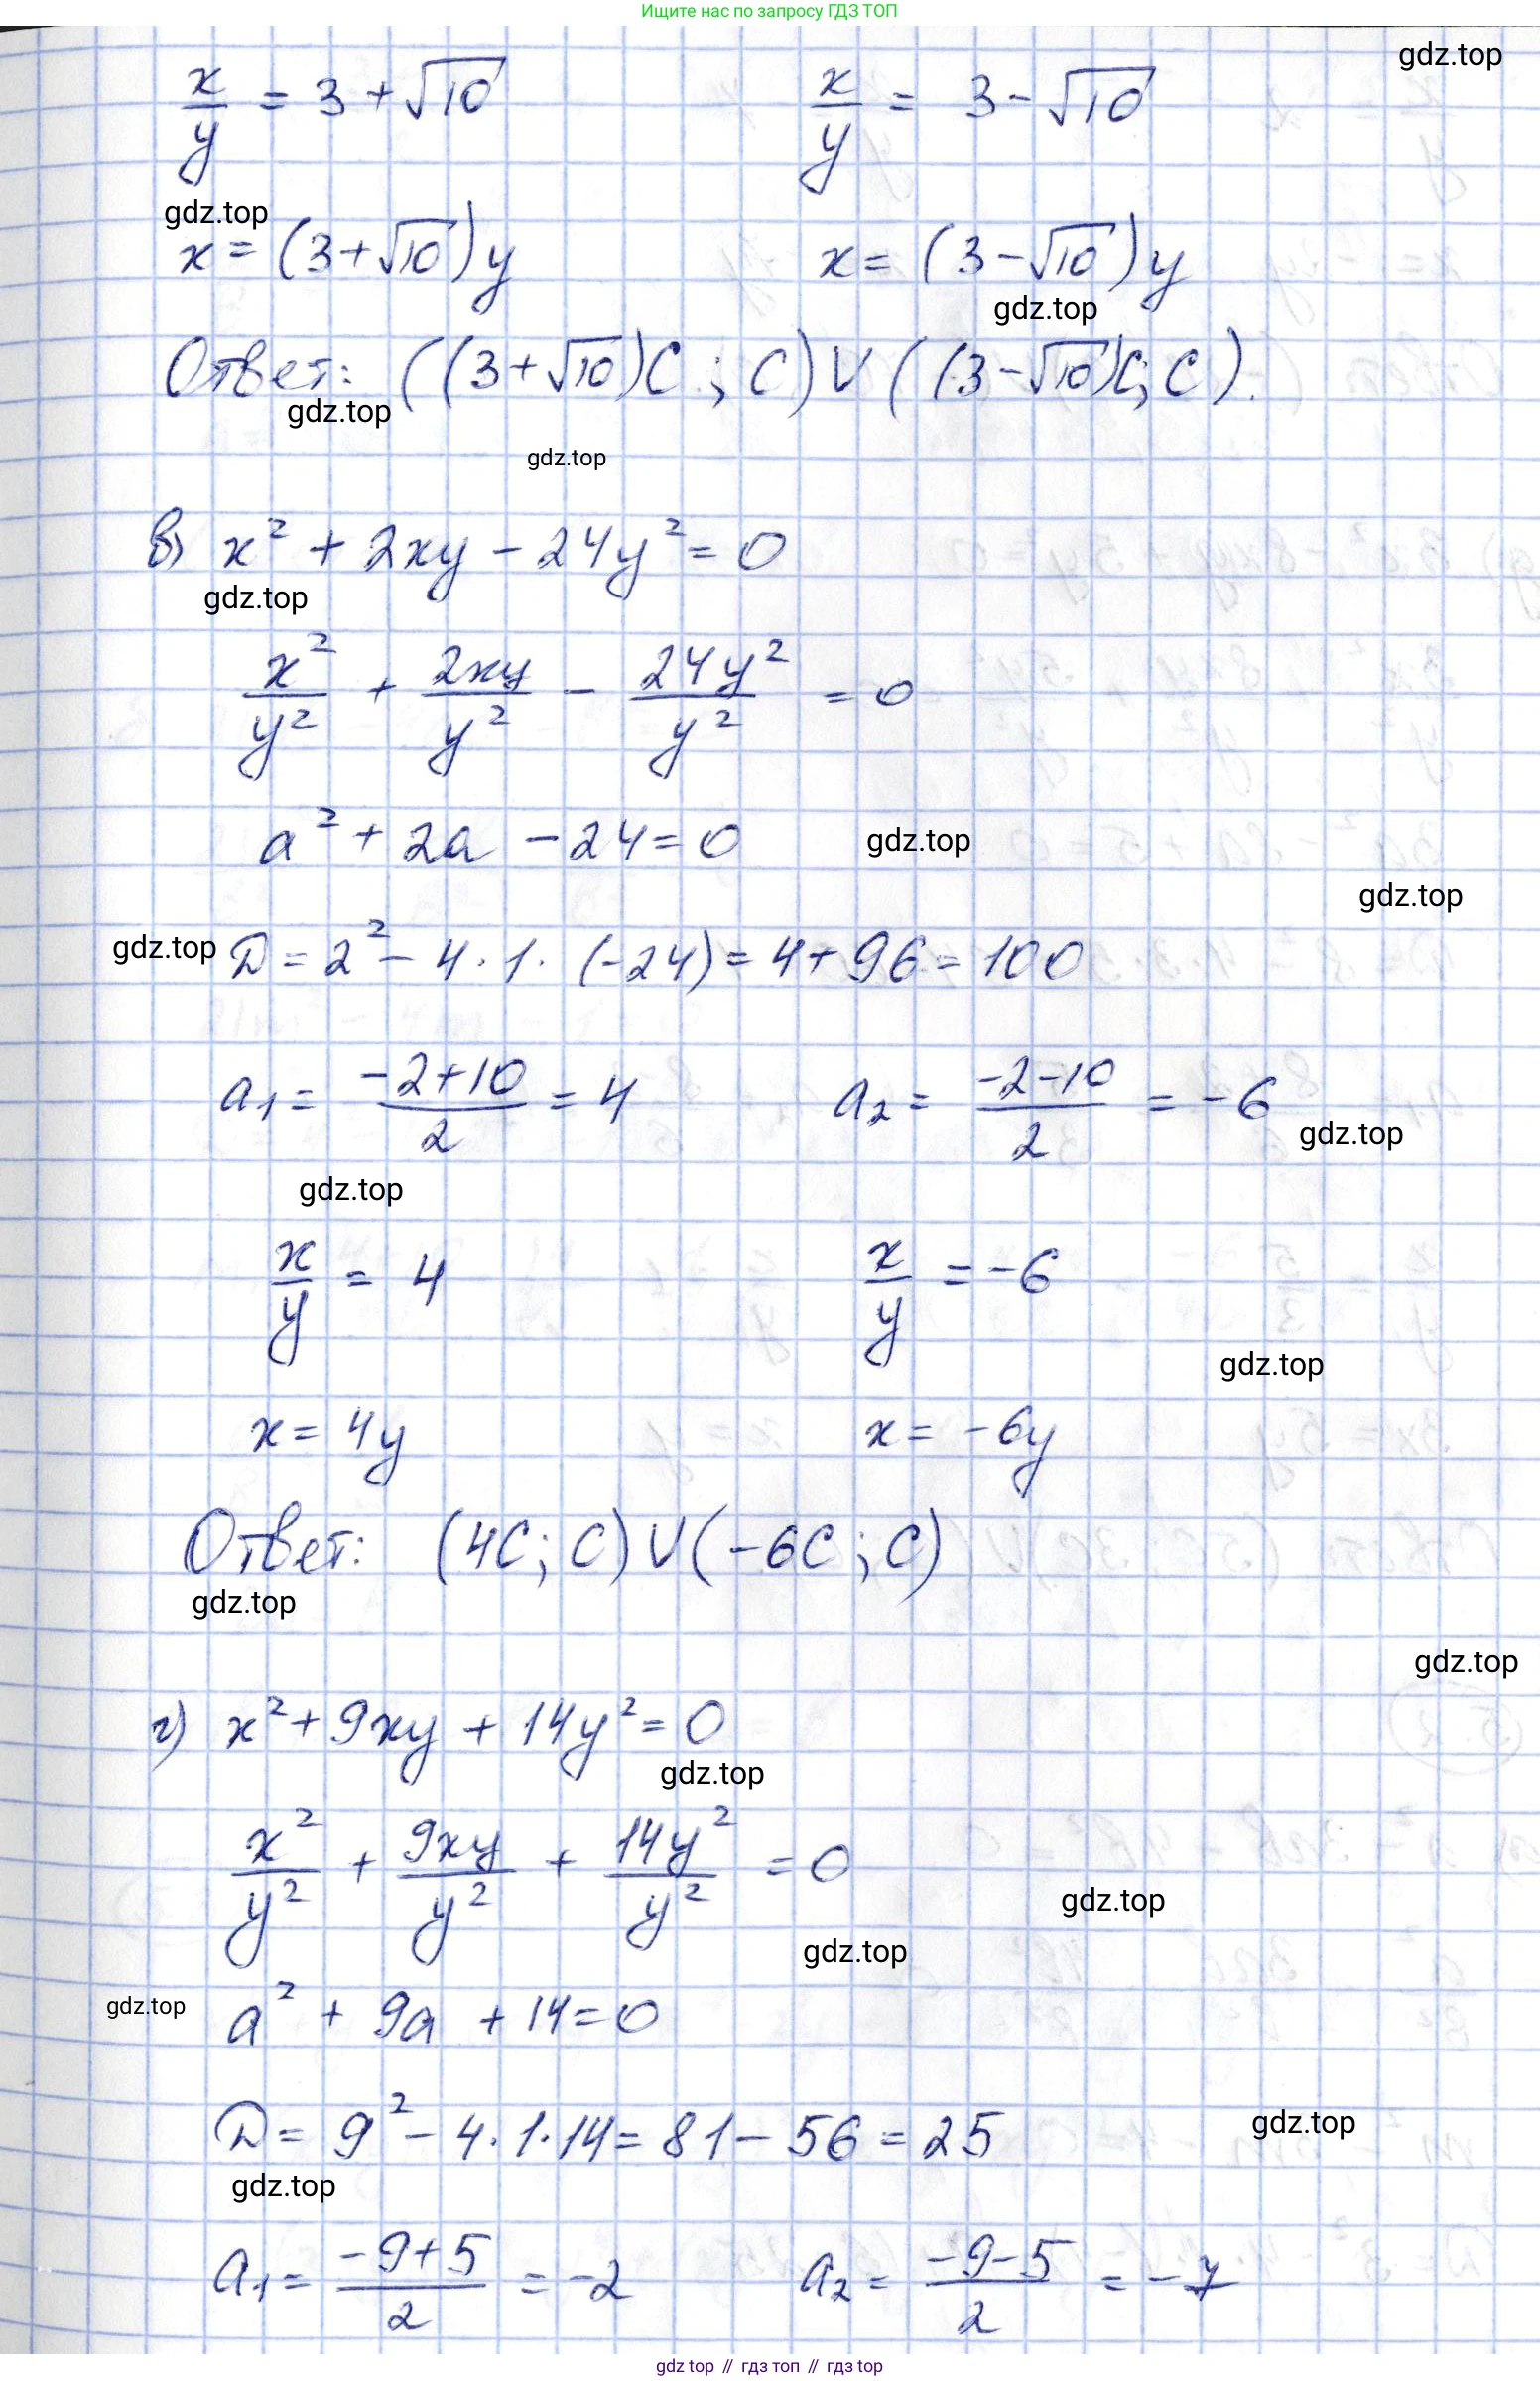 Ищите нас по запросу ГДЗ ТОП
gdz.top
x/y = 3 + √10   x/y = 3 - √10
gdz.top
x = (3 + √10)y   x = (3 - √10)y
gdz.top
Ответ: ((3 + √10)C ; C) V ((3 - √10)C; C).
gdz.top
gdz.top
в) x² + 2xy - 24y² = 0
gdz.top
x²/y² + 2xy/y² - 24y²/y² = 0
a² + 2a - 24 = 0
gdz.top
gdz.top
gdz.top
D = 2² - 4 · 1 · (-24) = 4 + 96 = 100
a₁ = (-2+10)/2 = 4   a₂ = (-2-10)/2 = -6
gdz.top
gdz.top
x/y = 4   x/y = -6
gdz.top
x = 4y   x = -6y
Ответ: (4C; C) V (-6C; C)
gdz.top
gdz.top
г) x² + 9xy + 14y² = 0
gdz.top
x²/y² + 9xy/y² + 14y²/y² = 0
gdz.top
gdz.top
gdz.top
a² + 9a + 14 = 0
D = 9² - 4 · 1 · 14 = 81 - 56 = 25
gdz.top
gdz.top
a₁ = (-9+5)/2 = -2   a₂ = (-9-5)/2 = -7
gdz top // гдз топ // gdz.top